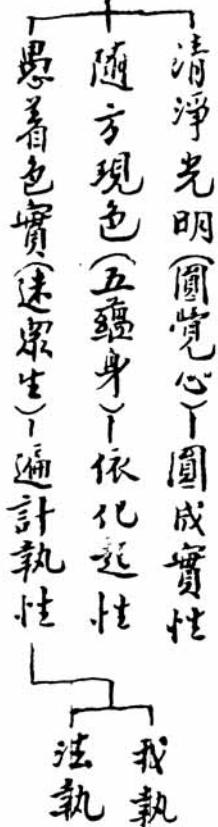 清淨光明(圓覺心)—圓成實性
隨方現色(五蘊身)—依化起性
愚着色實(迷眾生)—遍計執性
我執
法執